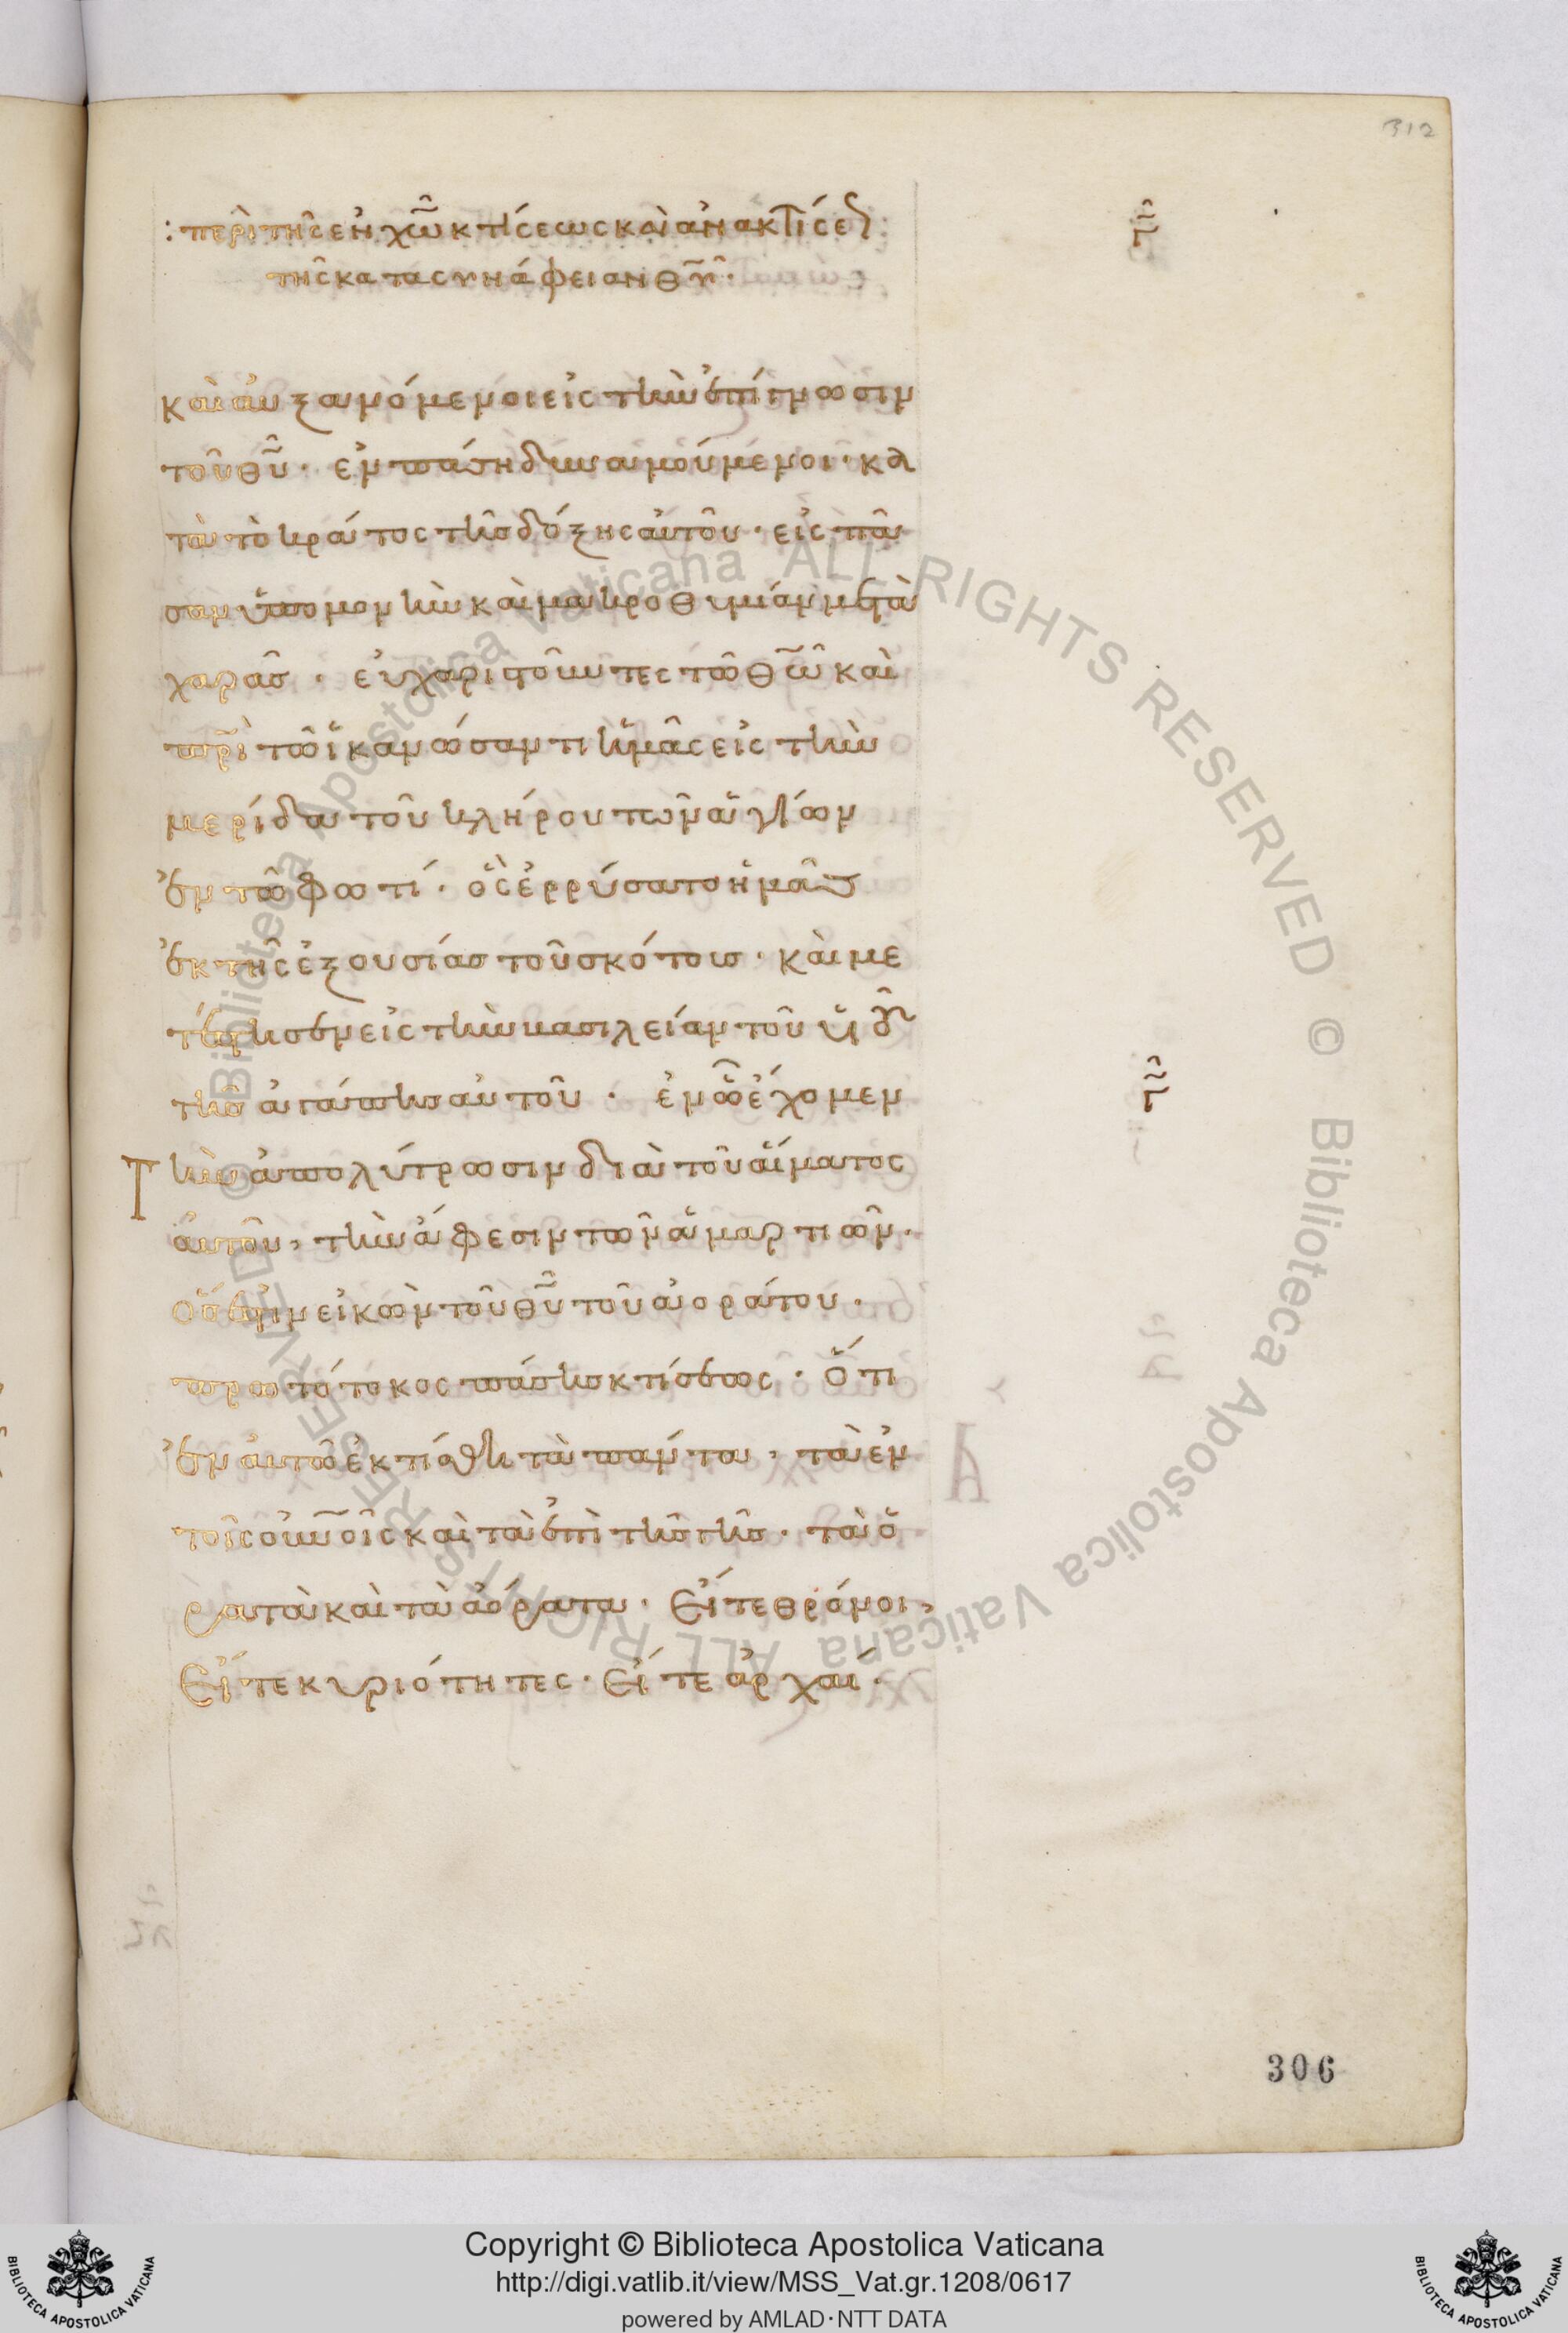 312
: περὶ τῆς ἐν χω̃ κτίσεως καὶ ἀνακτίσεως
τῆς κατα συνάφειαν θυ̃ ·
καὶ αὐξανόμενοι εἰς τὴν ἐπίγνωσιν
τοῦ θυ̃ · ἐν πάσῃ δυναμούμενοι · κα
τὰ τὸ κράτος τῆς δόξης αὐτοῦ · εἰς πᾶ
σαν ὑπομονὴν καὶ μακροθυμίαν μετὰ
χαρᾶς · εὐχαριστοῦντες τῶ θω̃ καὶ
πρὶ̃ τῶ ἱκανώσαντι ἡμᾶς εἰς τὴν
μερίδα τοῦ κλήρου τῶν ἁγίων
ἐν τῶ φωτί · ὃς ἐρρύσατο ἡμᾶς
ἐκ τῆς ἐξουσίας τοῦ σκότους · καὶ με
τέστησεν εἰς τὴν βασιλείαν τοῦ υἱοῦ
τῆς ἀγάπης αὐτοῦ · ἐν ὧ ἔχομεν
Τὴν ἀπολύτρωσιν διὰ τοῦ αἵματος
αὐτοῦ, τὴν ἄφεσιν τῶν ἁμαρτιῶν ·
ὅς ἐστιν εἰκὼν τοῦ θυ̃ τοῦ ἀοράτου ·
πρωτότοκος πάσης κτίσεως · ὅτι
ἐν αὐτῶ ἐκτίσθη τὰ πάντα, τὰ ἐν
τοῖς οὐνοῖς καὶ τὰ ἐπὶ τῆς γῆς · τὰ ὁ
ρατὰ καὶ τὰ ἀόρατα · Εἴτε θρόνοι,
Εἴτε κυριότητες · Εἴτε ἀρχαί ·
306
Copyright © Biblioteca Apostolica Vaticana
http://digi.vatlib.it/view/MSS_Vat.gr.1208/0617
powered by AMLAD·NTT DATA
BIBLIOTECA APOSTOLICA VATICANA
BIBLIOTECA APOSTOLICA VATICANA
© Biblioteca Apostolica Vaticana ALL RIGHTS RESERVED © Biblioteca Apostolica Vaticana ALL RIGHTS RESERVED